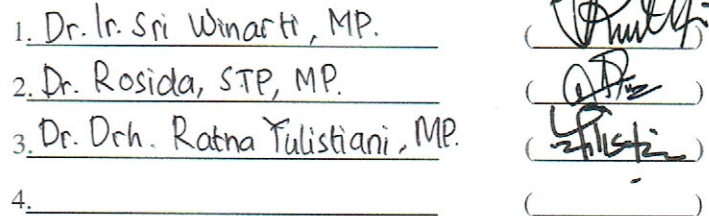 1. Dr. Ir. Sri Winarti, MP. ( )
2. Dr. Rosida, STP, MP. ( )
3. Dr. Drh. Ratna Yulistiani, MP. ( )
4. ( )